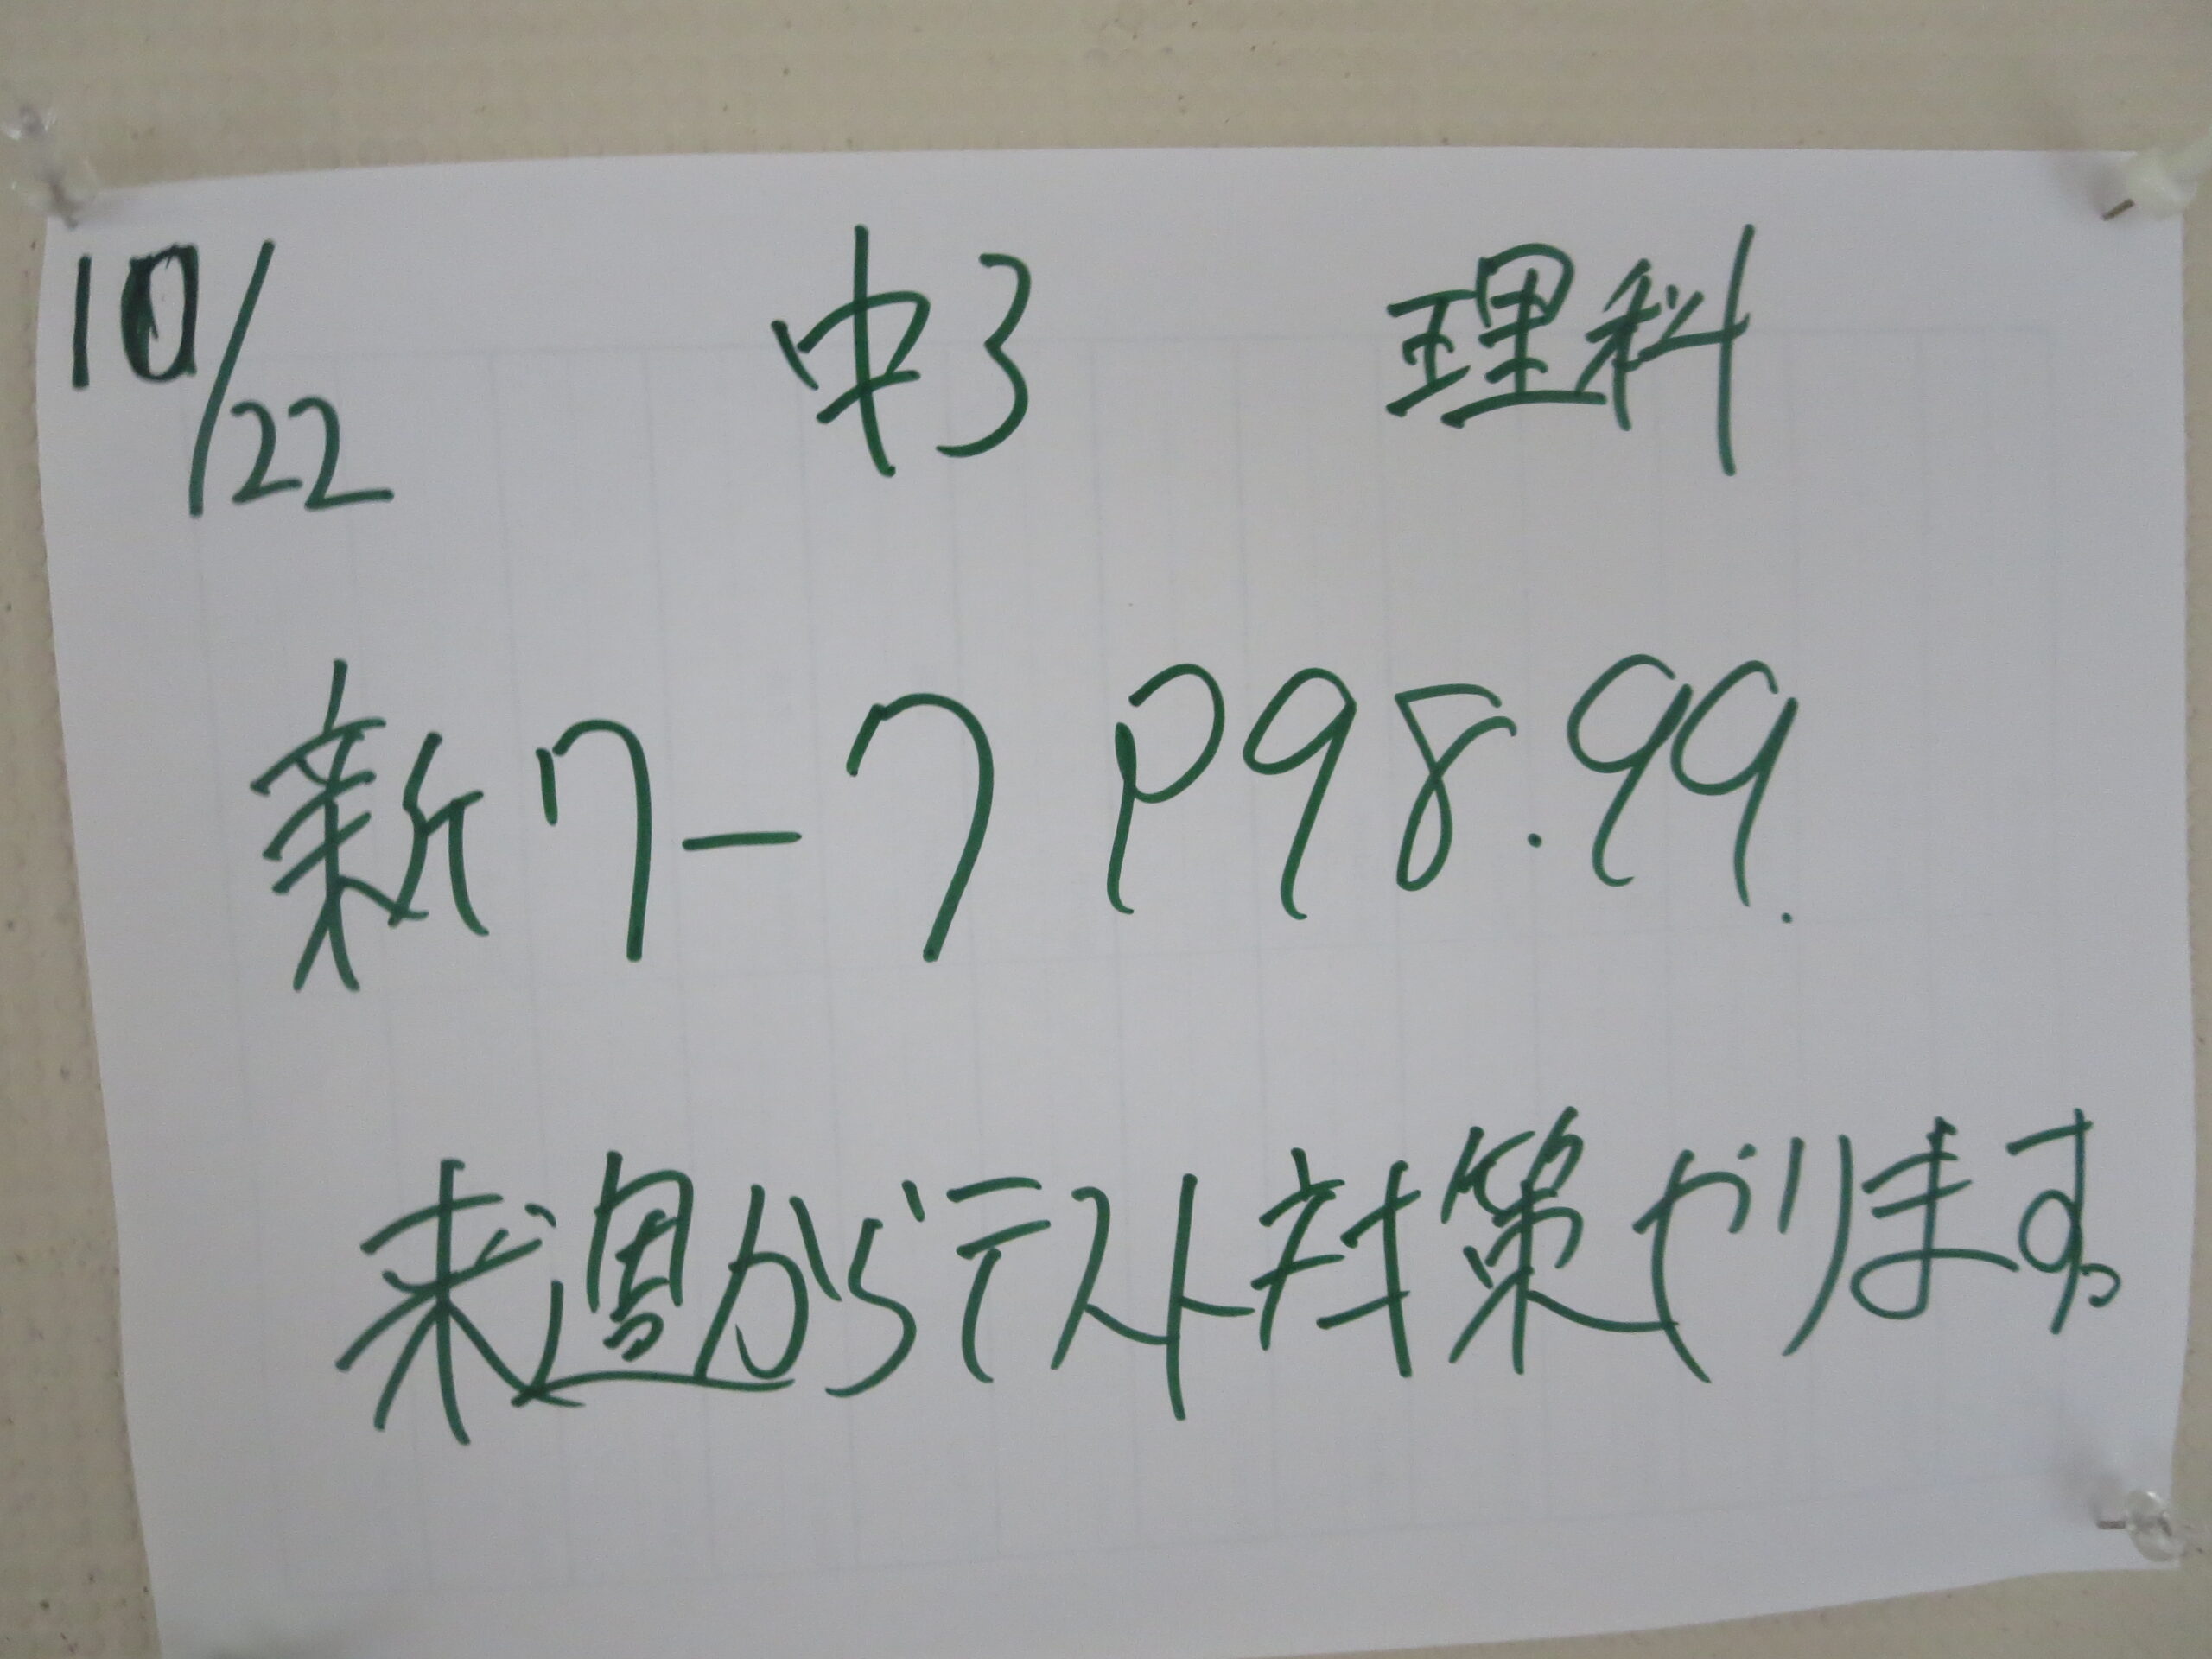 10/22 中3 理科
新ワーク P98.99.
来週からテスト対策やります。